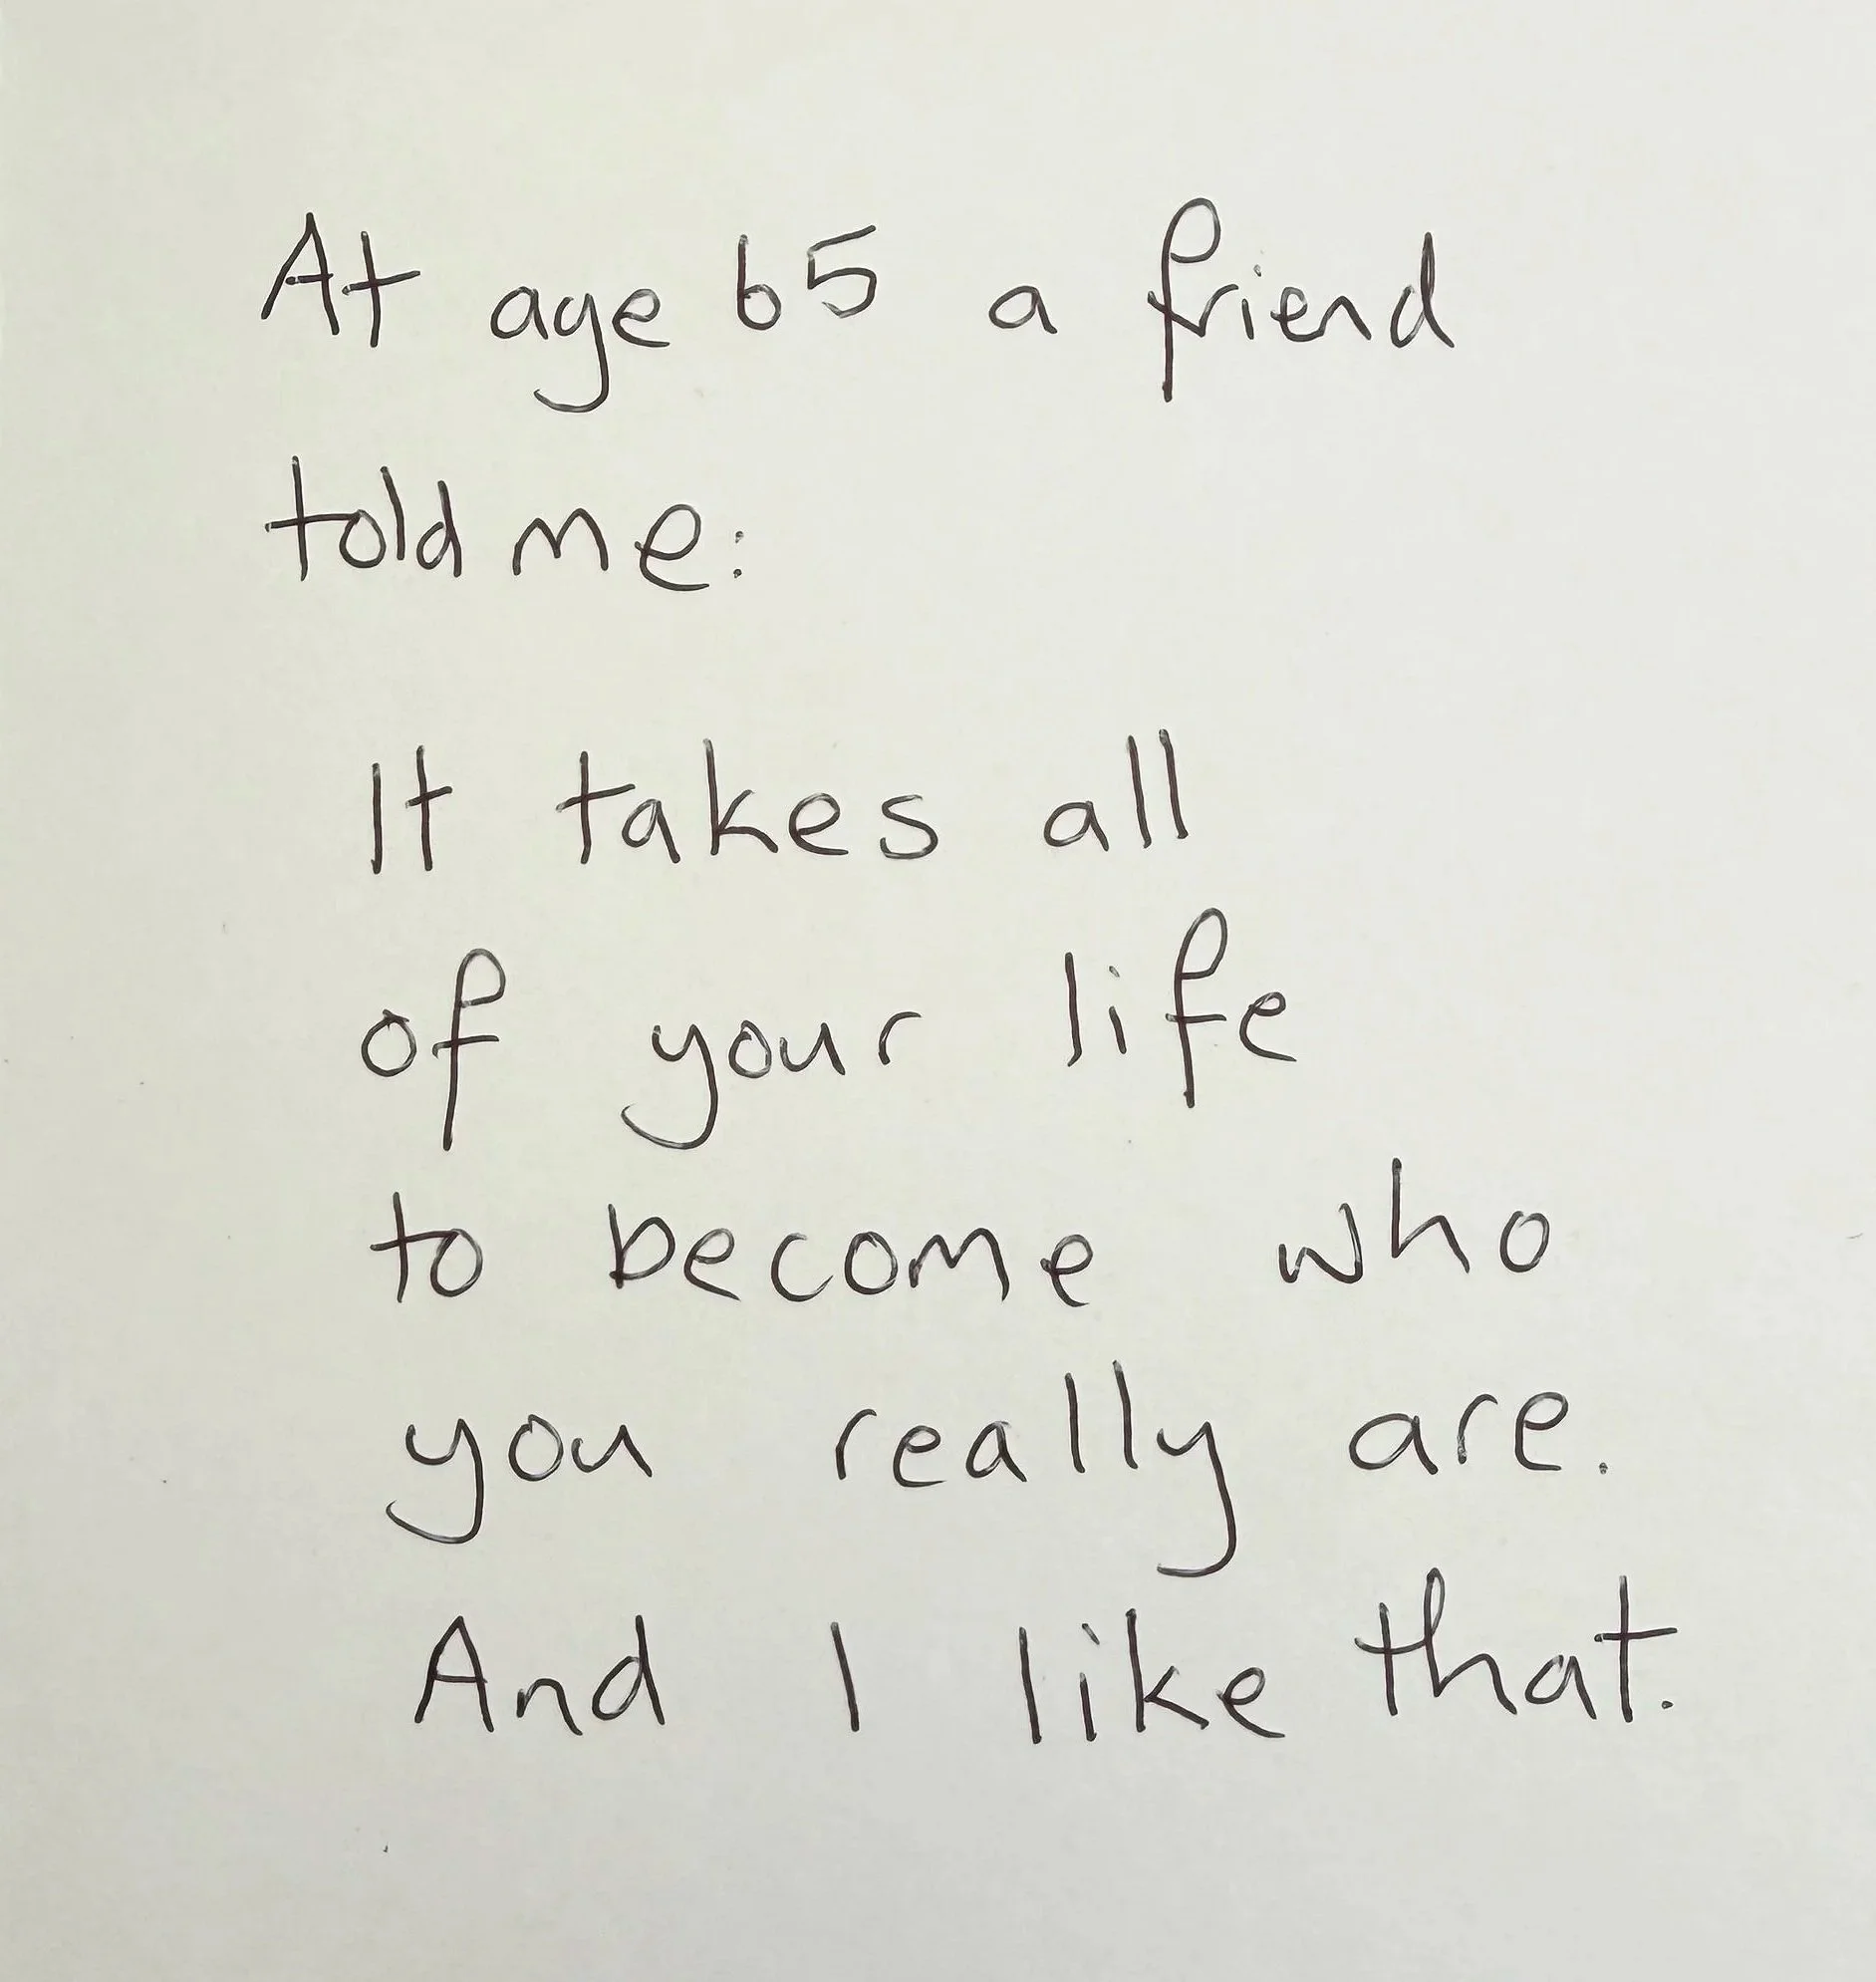 At age 65 a friend
told me:
It takes all
of your life
to become who
you really are.
And I like that.